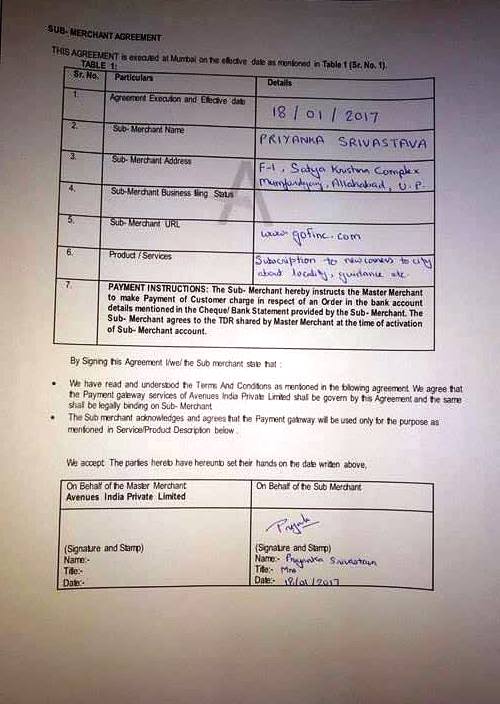 SUB- MERCHANT AGREEMENT
THIS AGREEMENT is executed at Mumbai on the effective date as mentioned in Table 1 (Sr. No. 1).
TABLE 1:
Sr. No. Particulars Details
1. Agreement Execution and Effective date 18 / 01 / 2017
2. Sub- Merchant Name PRIYANKA SRIVASTAVA
3. Sub- Merchant Address F-1, Satya Krishna Complex
Allahabad, U.P.
4. Sub-Merchant Business filing Status
5. Sub- Merchant URL www.gofinc.com
6. Product / Services Subscription to newcomers to city
about locality, guidance etc.
7. PAYMENT INSTRUCTIONS: The Sub- Merchant hereby instructs the Master Merchant
to make Payment of Customer charge in respect of an Order in the bank account
details mentioned in the Cheque/ Bank Statement provided by the Sub- Merchant. The
Sub- Merchant agrees to the TDR shared by Master Merchant at the time of activation
of Sub- Merchant account.
By Signing this Agreement I/we/ the Sub merchant state that :
• We have read and understood the Terms And Conditions as mentioned in the following agreement. We agree that
the Payment gateway services of Avenues India Private Limited shall be govern by this Agreement and the same
shall be legally binding on Sub- Merchant
• The Sub merchant acknowledges and agrees that the Payment gateway will be used only for the purpose as
mentioned in Service/Product Description below .
We accept The parties hereto have hereunto set their hands on the date written above,
On Behalf of the Master Merchant On Behalf of the Sub Merchant
Avenues India Private Limited
(Signature and Stamp) (Signature and Stamp)
Name:- Name:- Priyanka Srivastava
Title:- Title:- Mrs
Date:- Date:- 18/01/2017